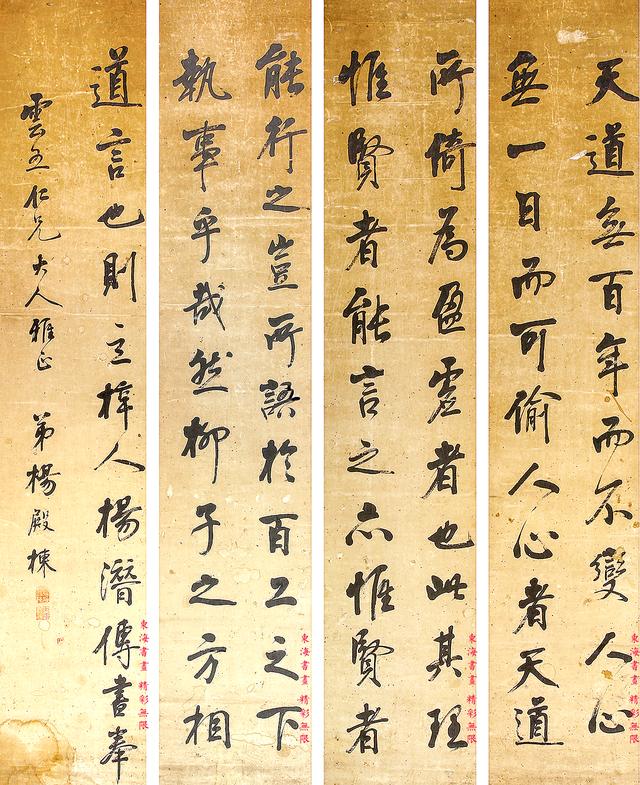 天道無百年而不變人心
無一日而可偷人心者天道
所倚為盈虛者也此其理
惟賢者能言之亦惟賢者
能行之豈所語於百工之下
執事乎哉然柳子之方相
道言也則立梓人楊潛傳書奉
雲五仁兄大人雅正 弟楊殿棟
東海書畫 精彩無限
東海書畫 精彩無限
東海書畫 精彩無限
東海書畫 精彩無限